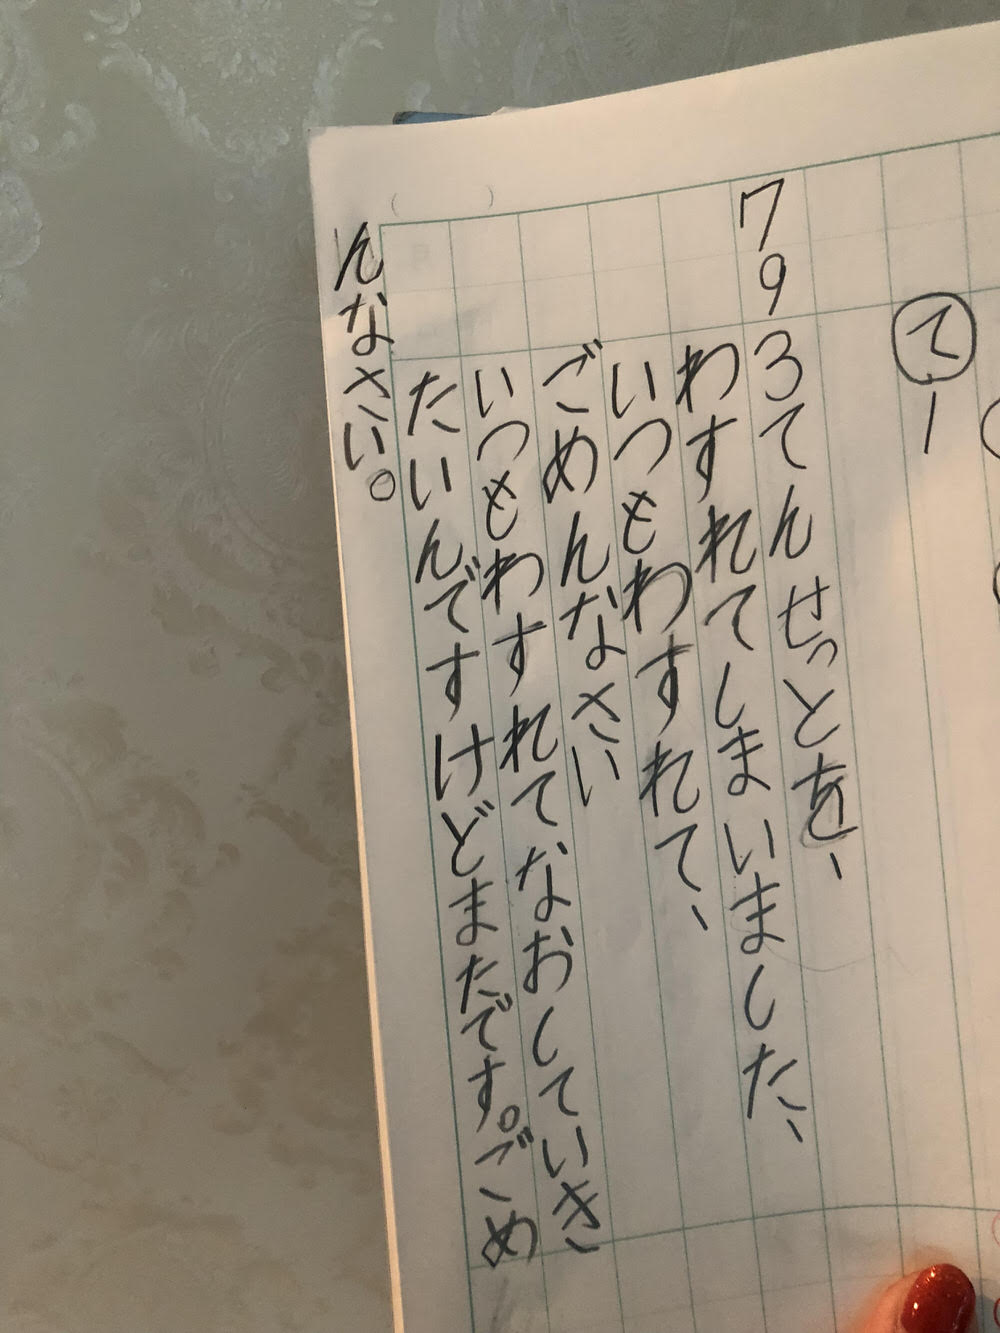 て 1
7 9 3てんせっとを、
わすれてしまいました、
いつもわすれて、
ごめんなさい
いつもわすれてなおしていき
たいんですけどまだです。ごめ
んなさい。